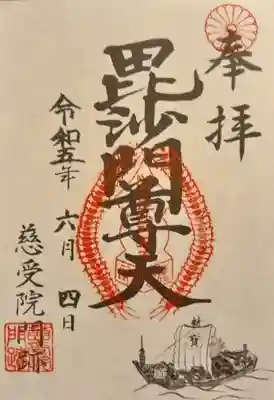 奉拝
毘沙門尊天
令和五年 六月 四日
慈受院
寳